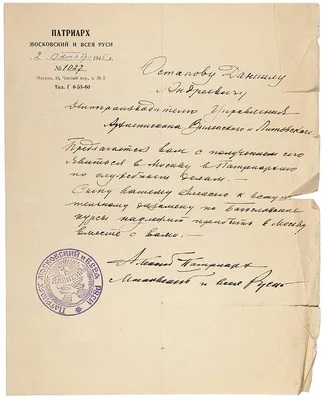 ПАТРИАРХ
МОСКОВСКИЙ И ВСЕЯ РУСИ
2 октября 1945 г.
№ 1027
Москва, 34, Чистый пер., д. № 5
Тел. Г 6-53-60
Остапову Даниилу
Андреевичу
Делопроизводителю Управления
Архиепископа и Литовского.
Предлагается вам с получением сего
явиться в Москву в Патриархию
по служебным делам.
Сыну вашему Алексею к вступи-
тельному экзамену на Богословские
курсы надлежит прибыть в Москву
вместе с вами.
Алексий Патриарх
Московский и всея Руси